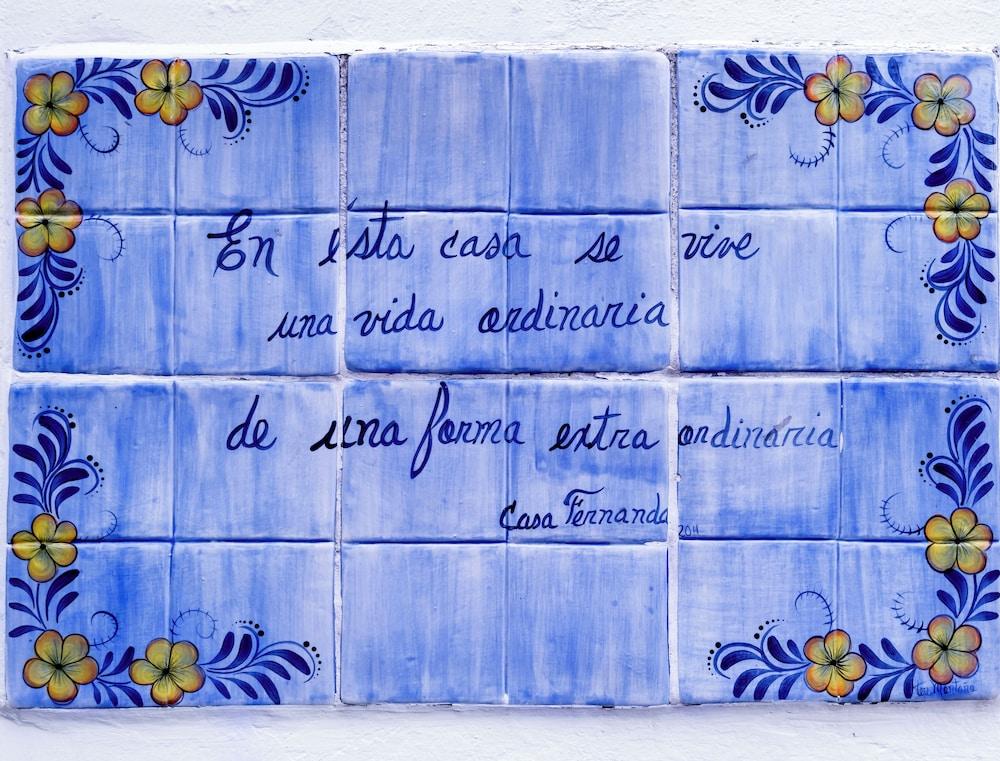 En ésta casa se vive
una vida ordinaria
de una forma extra ordinaria
Casa Fernanda
2011
Montaño